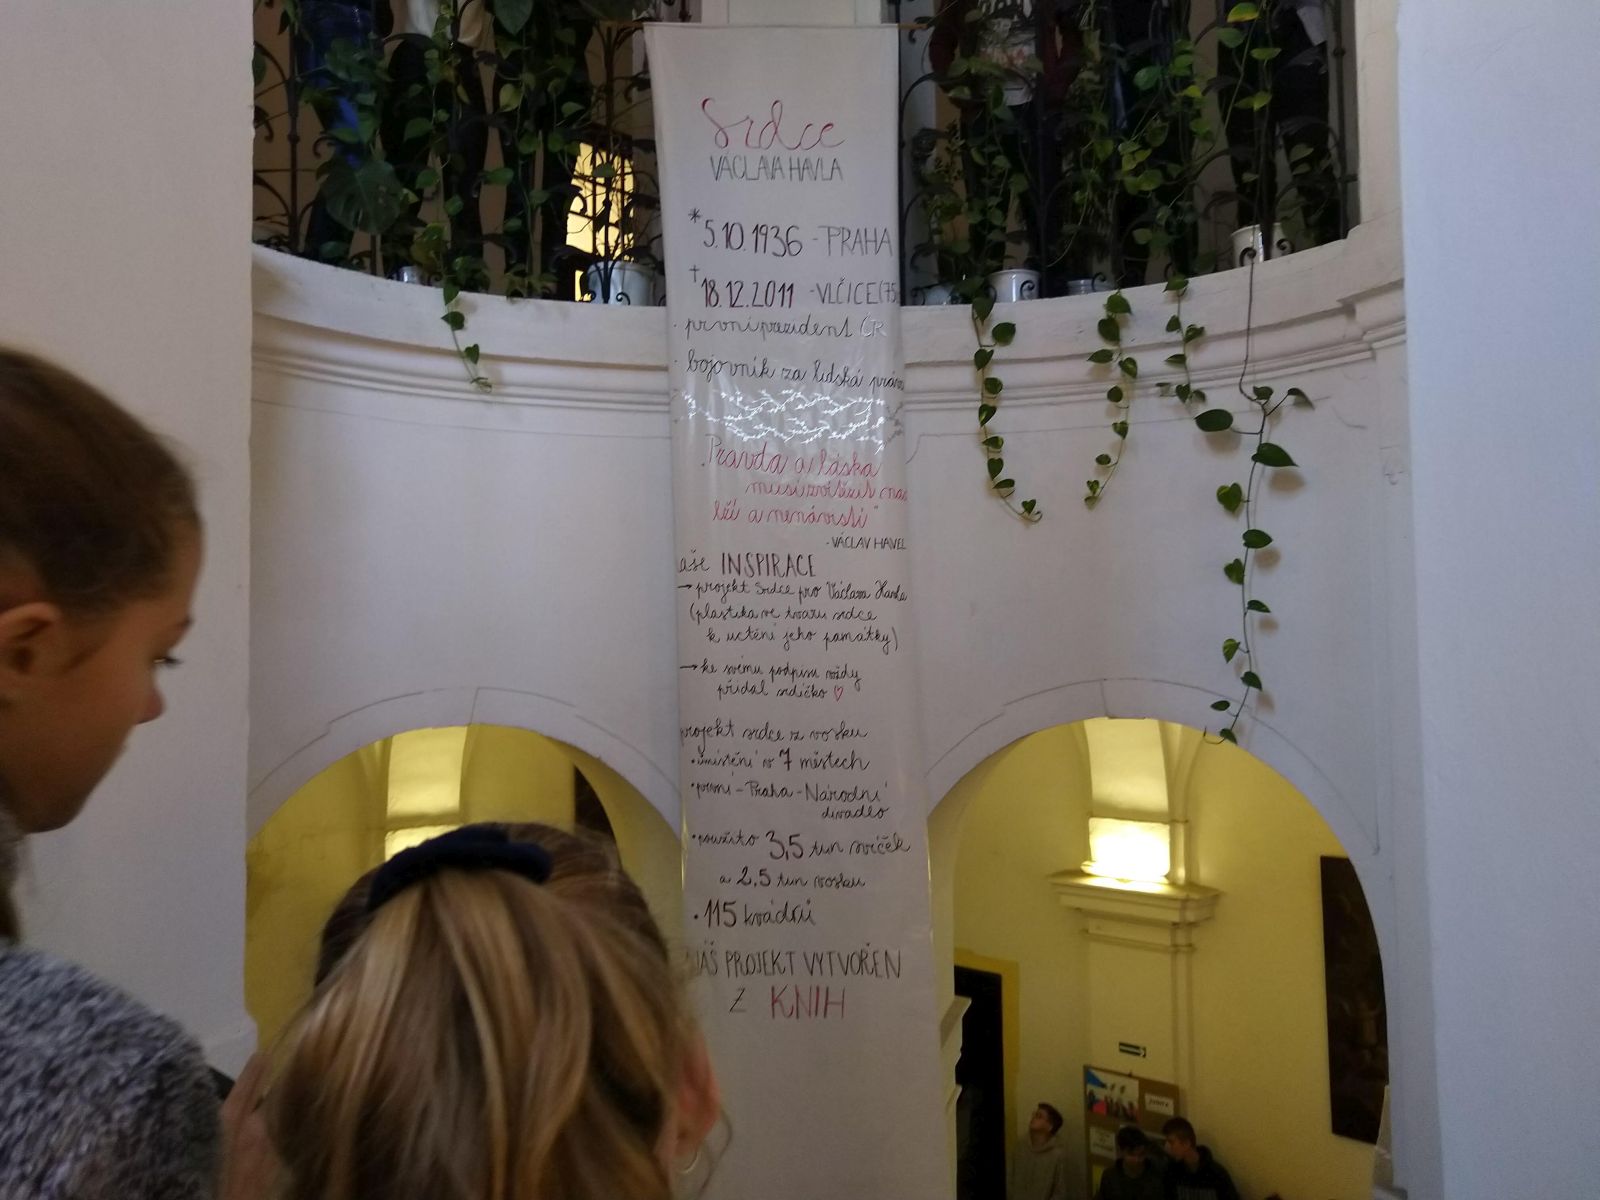 Srdce
VÁCLAVA HAVLA
* 5.10.1936 - PRAHA
† 18.12.2011 - VLČICE (75
· první prezident ČR
· bojovník za lidská práva
„Pravda a láska
musí zvítězit nad
lží a nenávistí"
- VÁCLAV HAVEL
aše INSPIRACE
→ projekt Srdce pro Václava Havla
(plastika ve tvaru srdce
k uctění jeho památky)
→ ke svému podpisu vždy
přidal srdíčko ♡
projekt srdce z vosku
· umístění v 7 městech
· první - Praha - Národní
divadlo
· použito 3,5 tun svíček
a 2,5 tun vosku
· 115 kvádrů
NÁŠ PROJEKT VYTVOŘEN
Z KNIH